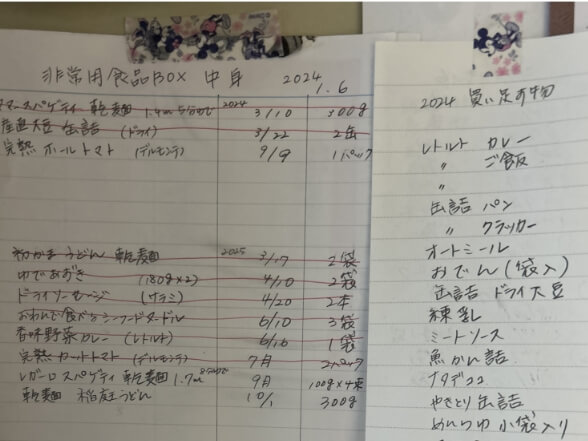 非常用食品BOX 中身 2024 1.6
マースパゲティー 乾麺 1.4m 5分ゆで 2024 3/10 300g
産直大豆 缶詰 (ドライ) 3/22 2缶
完熟 ホールトマト (デルモンテ) 9/9 1パック
うどん 乾麺 2025 3/17 2袋
ゆであずき (180g×2) 4/10 2袋
ドライソーセージ (サラミ) 4/20 2本
おわんで食べるシーフードヌードル 6/10 3袋
香味野菜カレー (レトルト) 6/16 1袋
完熟 カットトマト (デルモンテ) 7月 2パック
レガーロスパゲティ 乾麺 1.7m 9月 100g×4束
乾麺 稲庭うどん 10/1 300g
2024 買い足す物
レトルト カレー
〃 ご飯
〃
缶詰 パン
〃 クラッカー
オートミール
おでん(袋入)
缶詰 ドライ大豆
練乳
ミートソース
魚かん詰
ナタデココ
やきとり缶詰
めんつゆ 小袋入り